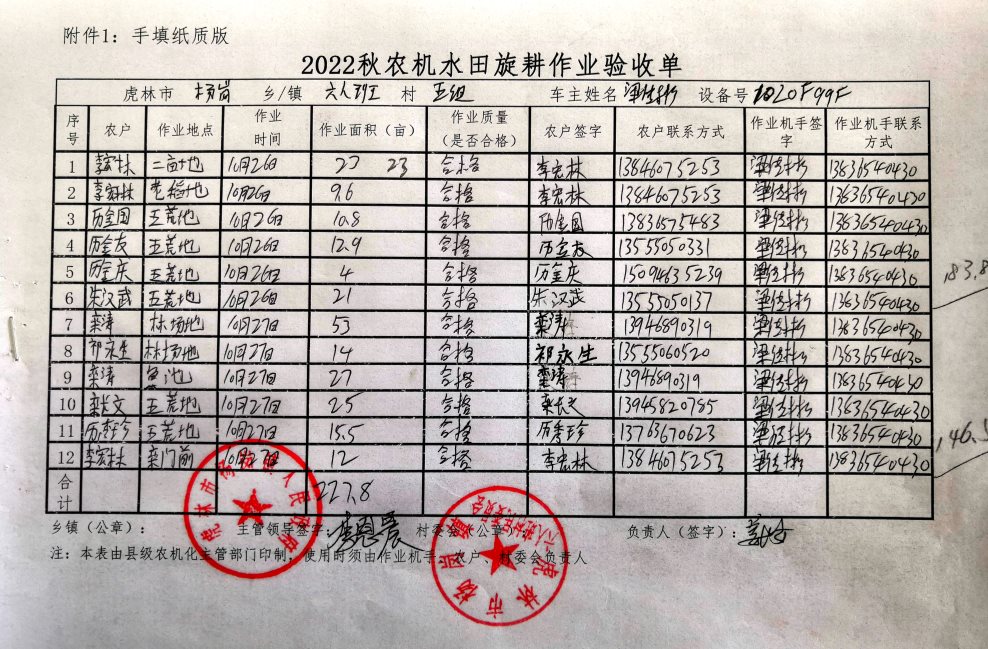 附件1：手填纸质版
2022秋农机水田旋耕作业验收单
虎林市 杨岗 乡/镇 六人班 村 五组 车主姓名 设备号
序号 农户 作业地点 作业时间 作业面积（亩） 作业质量（是否合格） 农户签字 农户联系方式 作业机手签字 作业机手联系方式
1 李宏林 二亩地 10月26日 23 23 合格 李宏林 13846075253 13836540430
2 李宏林 10月26日 9.6 合格 李宏林 13846075253 13836540430
3 历金国 五荒地 10月26日 10.8 合格 历金国 13836575483 13836540430
4 历金友 五荒地 10月26日 12.9 合格 历金友 13555050331 13836540430
5 历金庆 五荒地 10月26日 4 合格 历金庆 15094635239 13836540430
6 朱汉武 五荒地 10月26日 21 合格 朱汉武 13555050137 13836540430
183.8
7 栾涛 林场地 10月27日 53 合格 栾涛 13946890319 13836540430
8 祁永生 林场地 10月27日 14 合格 祁永生 13555060520 13836540430
9 栾涛 鱼池 10月27日 27 合格 栾涛 13946890319 13836540430
10 栾长文 五荒地 10月27日 25 合格 栾长文 13945820785 13836540430
11 历秀珍 五荒地 10月27日 15.5 合格 历秀珍 13763670623 13836540430
146.5
12 李宏林 栾门前 10月27日 12 合格 李宏林 13846075253 13836540430
合计 227.8
乡镇（公章）： 主管领导签字： 村委会（公章） 负责人（签字）：
注：本表由县级农机化主管部门印制，使用时须由作业机手、农户、村委会负责人